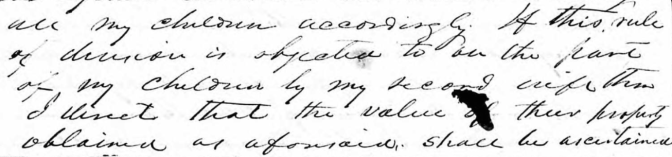 all my children accordingly. If this rule
of division is objected to on the part
of my children by my second wife then
I direct that the value of their property
obtained as aforesaid. shall be ascertained